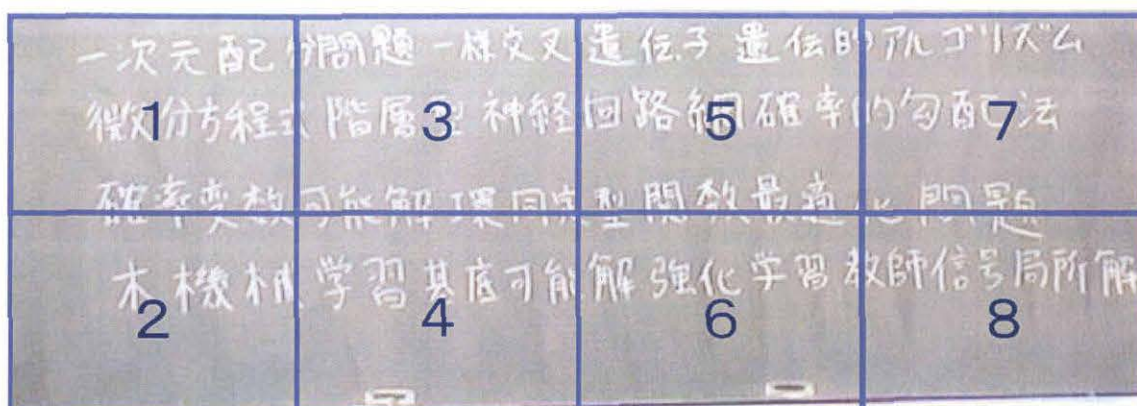 一次元配分問題一様交叉遺伝子遺伝的アルゴリズム
微分方程式階層型神経回路網確率的勾配法
確率変数可能解環同定型関数最適化問題
木機械学習基底可能解強化学習教師信号局所解
1 3 5 7
2 4 6 8